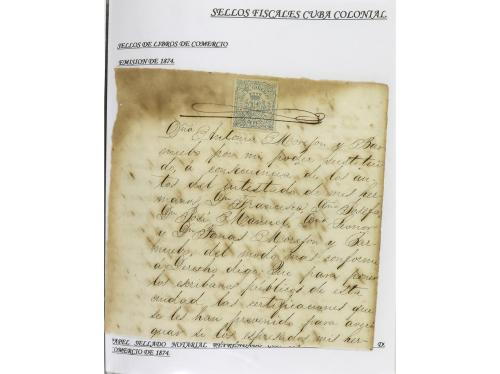 SELLOS FISCALES CUBA COLONIAL
SELLOS DE LIBROS DE COMERCIO
EMISION DE 1874.
Dña Antonia Monzon y Ber-
mudez por mi poder sustitui-
do, á consecuencia de los au-
tos del intestado de mis her-
manos Dn Francisco, Dña Josefa,
Dn José Manuel, Dña Leonor
y Dn Tomas Monzon y Ber-
mudez, del modo mas conforme
á derecho digo: Que para poner
los escribanos públicos de esta
ciudad las certificaciones que
se les han prevenido para averi-
guar si los espresados mis her-
PAPEL SELLADO NOTARIAL D
COMERCIO DE 1874.